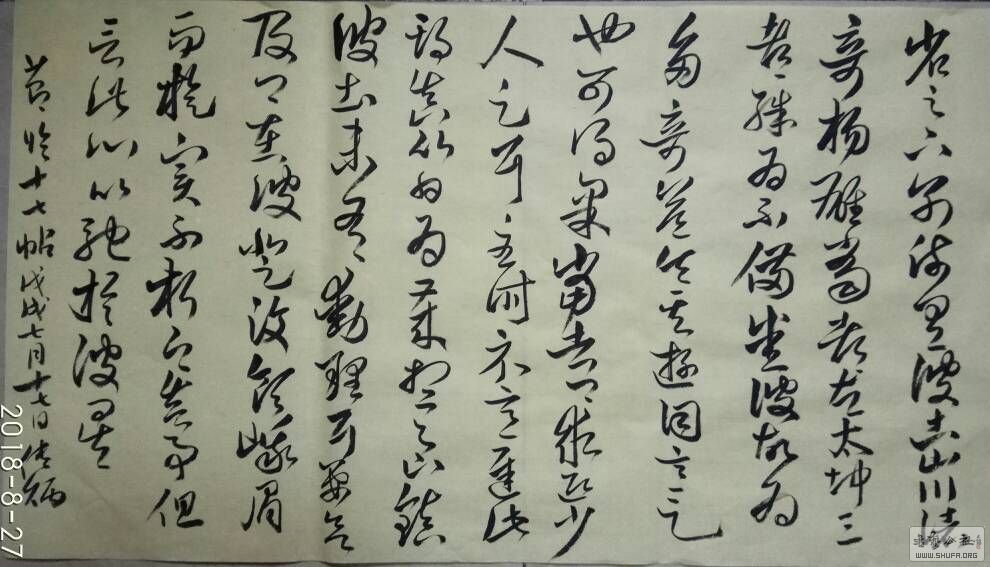 省足下別疏具彼土山川諸
奇楊雄蜀都左太沖三
都殊為不備悉彼故為
多奇益令其遊目意足
也可得果當告卿求迎少
人足耳至時示意遲此
期真以日為歲想足下鎮
彼土未有動理耳要欲
及卿在彼登汶領峨眉
而旋實不朽之盛事但
言此心以馳於彼矣
節臨十七帖戊戌七月十七日
2018-8-27
WWW.SHUFA.ORG